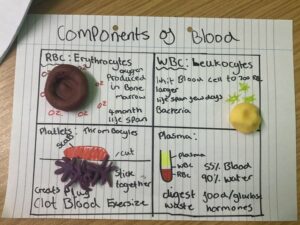 Components of Blood
RBC: Erythrocytes
oxygen
Produced
in Bone
marrow
O2
O2
O2
4 month
life span
WBC: Leukocytes
1 whit Blood cell to 700 RBC
larger
life span few days
Bacteria
Platlets: Thrombocytes
scab
cut
Stick
together
creats Plug
Clot Blood Exersize
Plasma:
plasma
WBC
RBC
55% Blood
90% water
digest food/glucose
waste hormones